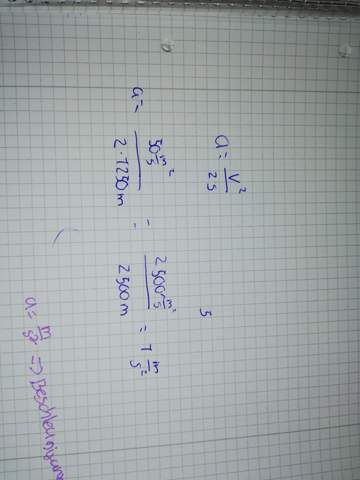 a = v² / 2s
s
a = 50 m/s ² / 2 · 1250 m = 2500 m²/s² / 2500 m = 1 m/s²
a = m/s² => Beschleunigung